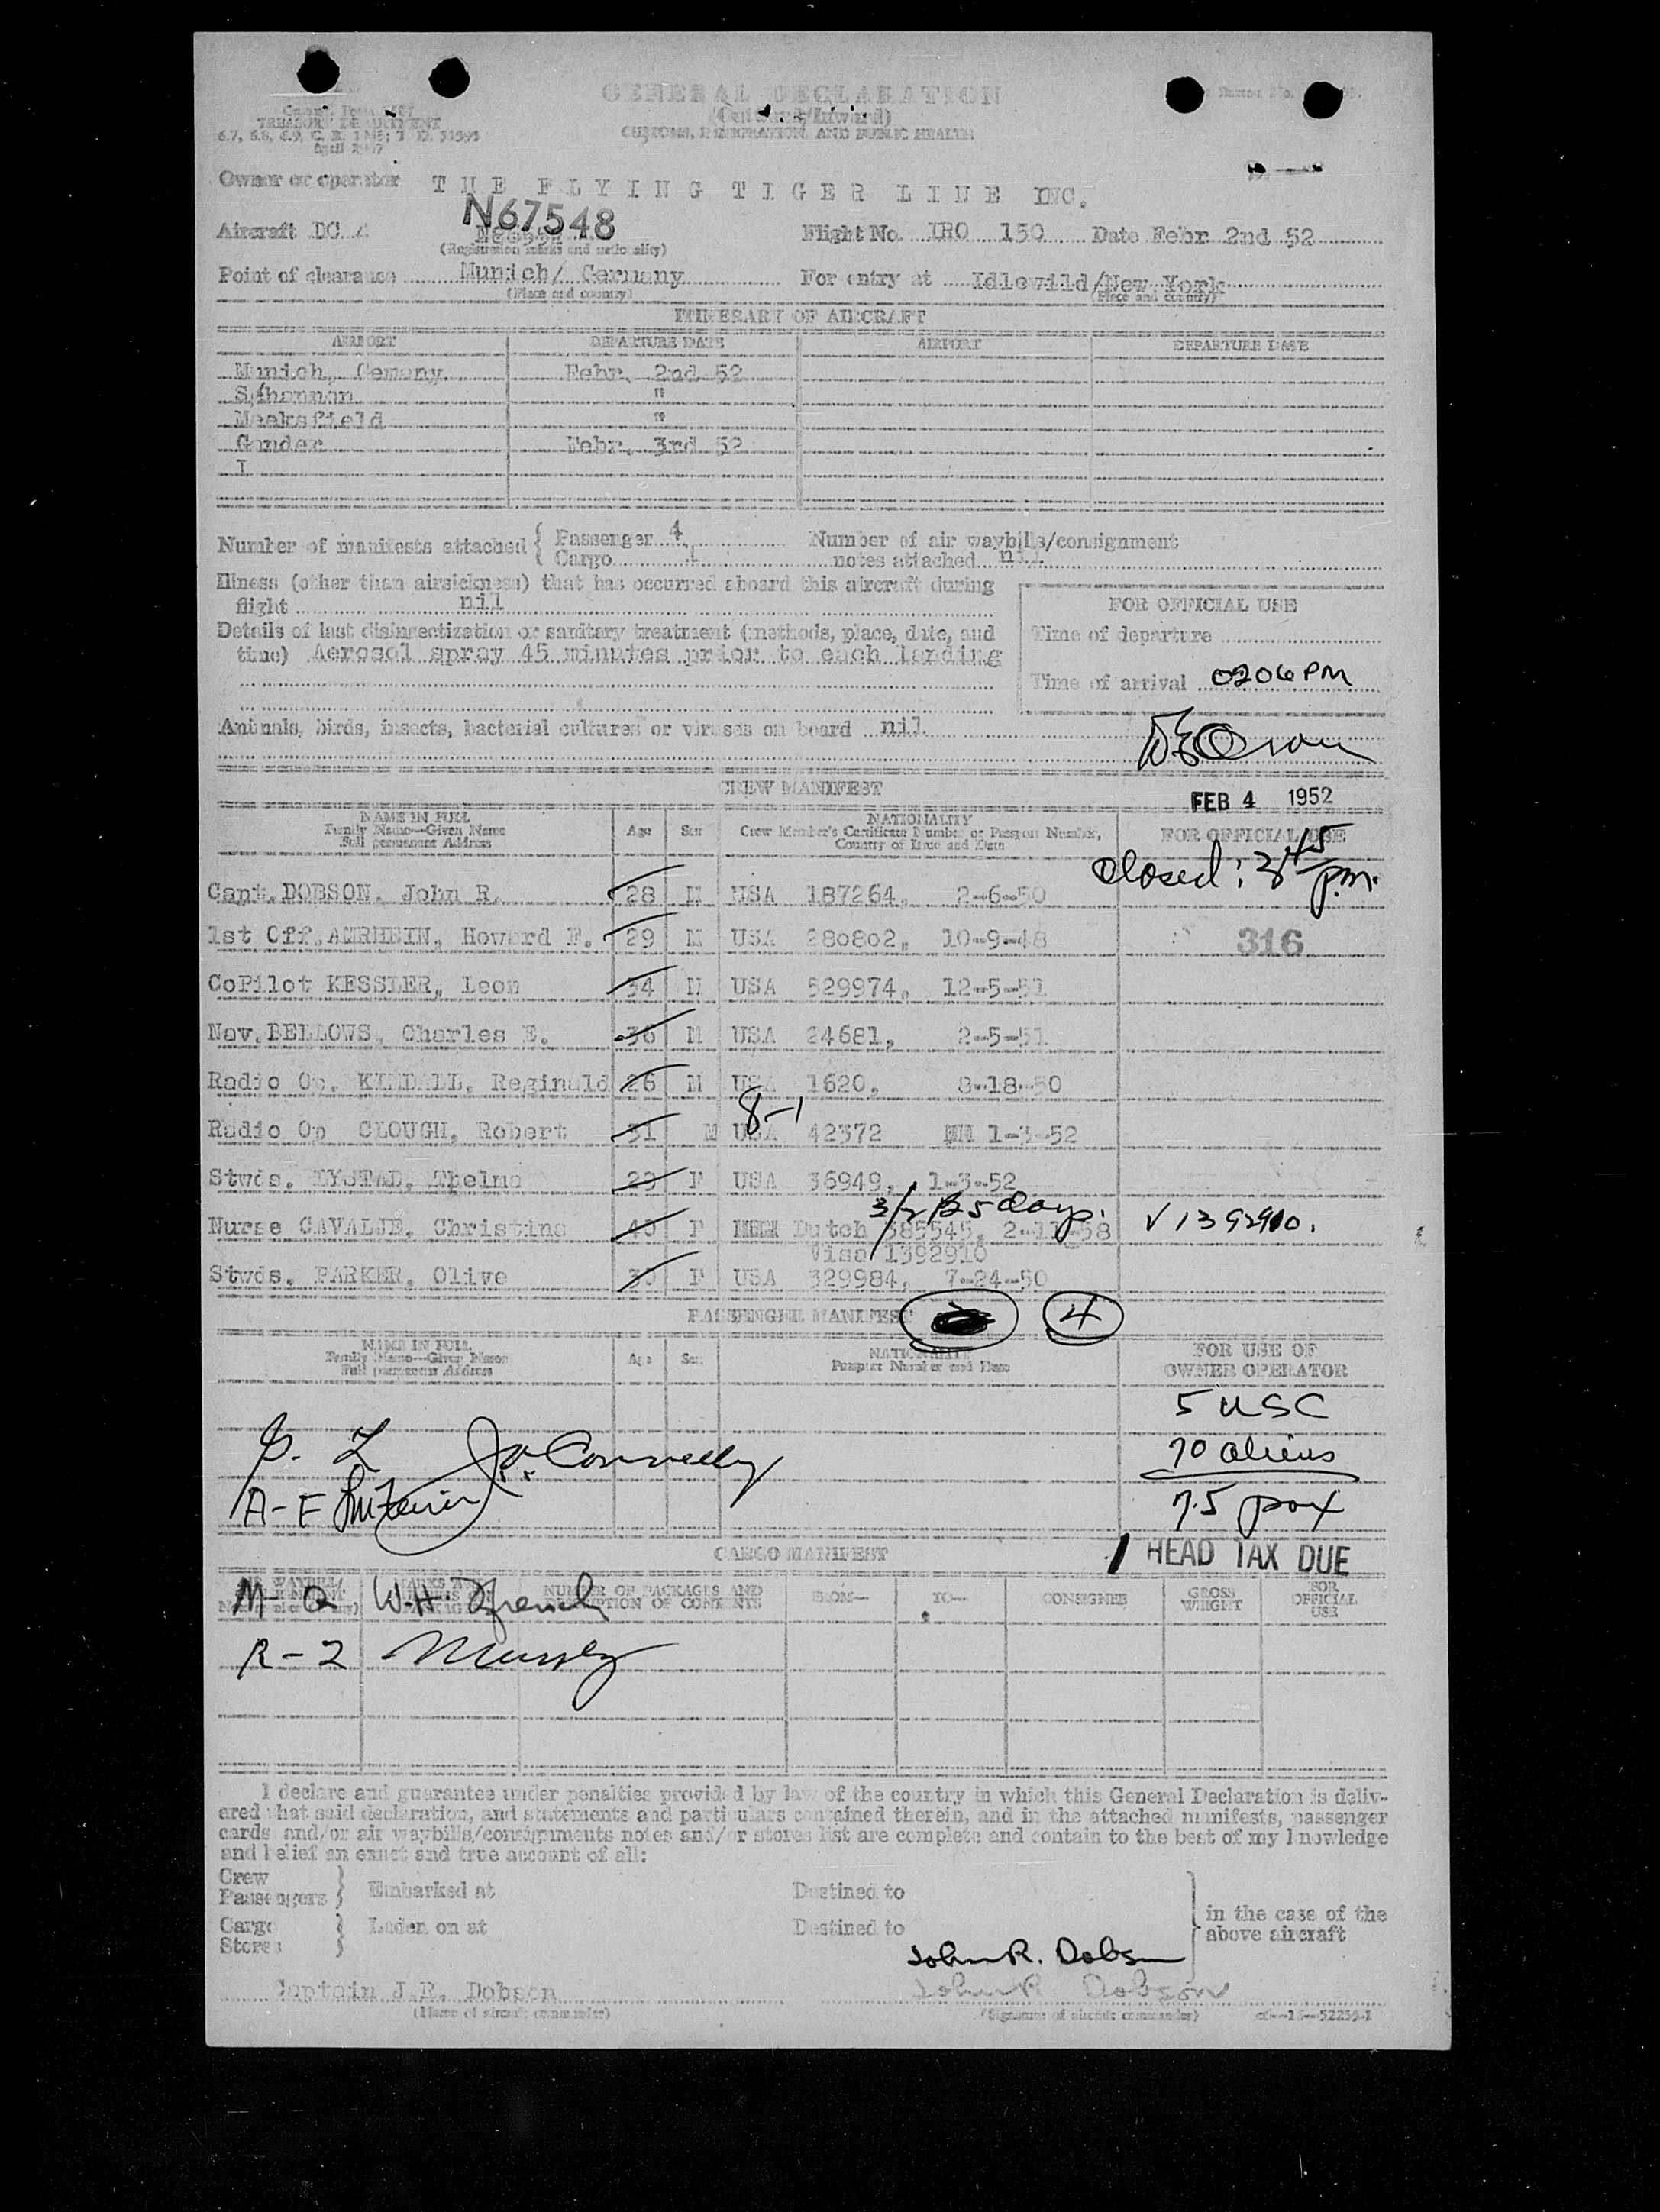 GENERAL DECLARATION
(Outward/Inward)
CUSTOMS, IMMIGRATION, AND PUBLIC HEALTH
TREASURY DEPARTMENT
April
Owner or operator THE FLYING TIGER LINE INC.
N67548
Aircraft DC 4 Flight No. IRO 150 Date Febr 2nd 52
(Registration marks and nationality)
Point of clearance Munich/ Germany For entry at Idlewild/New York
(Place and country) (Place and country)
ITINERARY OF AIRCRAFT
AIRPORT DEPARTURE DATE AIRPORT DEPARTURE DATE
Munich, Gemany Febr. 2nd 52
S/hannon "
Meeksfield "
Gander Febr. 3rd 52
Number of manifests attached { Passenger 4 Number of air waybills/consignment
Cargo notes attached nil
Illness (other than airsickness) that has occurred aboard this aircraft during
flight nil
FOR OFFICIAL USE
Details of last disinsectization or sanitary treatment (methods, place, date, and
Time of departure
time) Aerosol spray 45 minutes prior to each landing
Time of arrival 0206 PM
Animals, birds, insects, bacterial cultures or viruses on board nil
CREW MANIFEST
FEB 4 1952
NAME IN FULL
Family Name—Given Name
Full permanent Address
Age Sex
NATIONALITY
Crew Member's Certificate Number or Passport Number,
Country of Issue and Date
FOR OFFICIAL USE
closed: 3 45 p.m.
Capt. DOBSON, John R. 28 M USA 187264, 2-6-50
1st Off. AMRHEIN, Howard F. 29 M USA 280802, 10-9-48
316
CoPilot KESSLER, Leon 34 M USA 529974, 12-5-51
Nav. BELLOWS, Charles E. 36 M USA 24681, 2-5-51
Radio Op. Reginald 26 M USA 1620, 8-18-50
8-1
Radio Op CLOUGH, Robert 31 M USA 42372 1-3-52
Stwds. 29 F USA 36949, 1-3-52
Nurse CAVALJE, Christina 40 F Dutch 385545, 2-11-58
V 1392910.
Visa 1392910
Stwds. PARKER, Olive 30 F USA 329984, 7-24-50
PASSENGER MANIFEST 4
NAME IN FULL
Family Name—Given Name
Full permanent Address
Age Sex
NATIONALITY
Passport Number and Date
FOR USE OF
OWNER OPERATOR
5 USC
70 aliens
75 pax
Connelly
A-F
HEAD TAX DUE
CARGO MANIFEST
NUMBER OF PACKAGES AND
DESCRIPTION OF CONTENTS
FROM— TO— CONSIGNEE
GROSS
WEIGHT
FOR
OFFICIAL
USE
M-Q W.H. French
R-Z
I declare and guarantee under penalties provided by law of the country in which this General Declaration is deliv-
ered that said declaration, and statements and particulars contained therein, and in the attached manifests, passenger
cards and/or air waybills/consignments notes and/or stores list are complete and contain to the best of my knowledge
and belief an exact and true account of all:
Crew
Passengers } Embarked at Destined to
Cargo
Stores } Laden on at Destined to
in the case of the
above aircraft
John R. Dobson
Captain J.R. Dobson John R Dobson
(Name of aircraft commander) (Signature of aircraft commander)